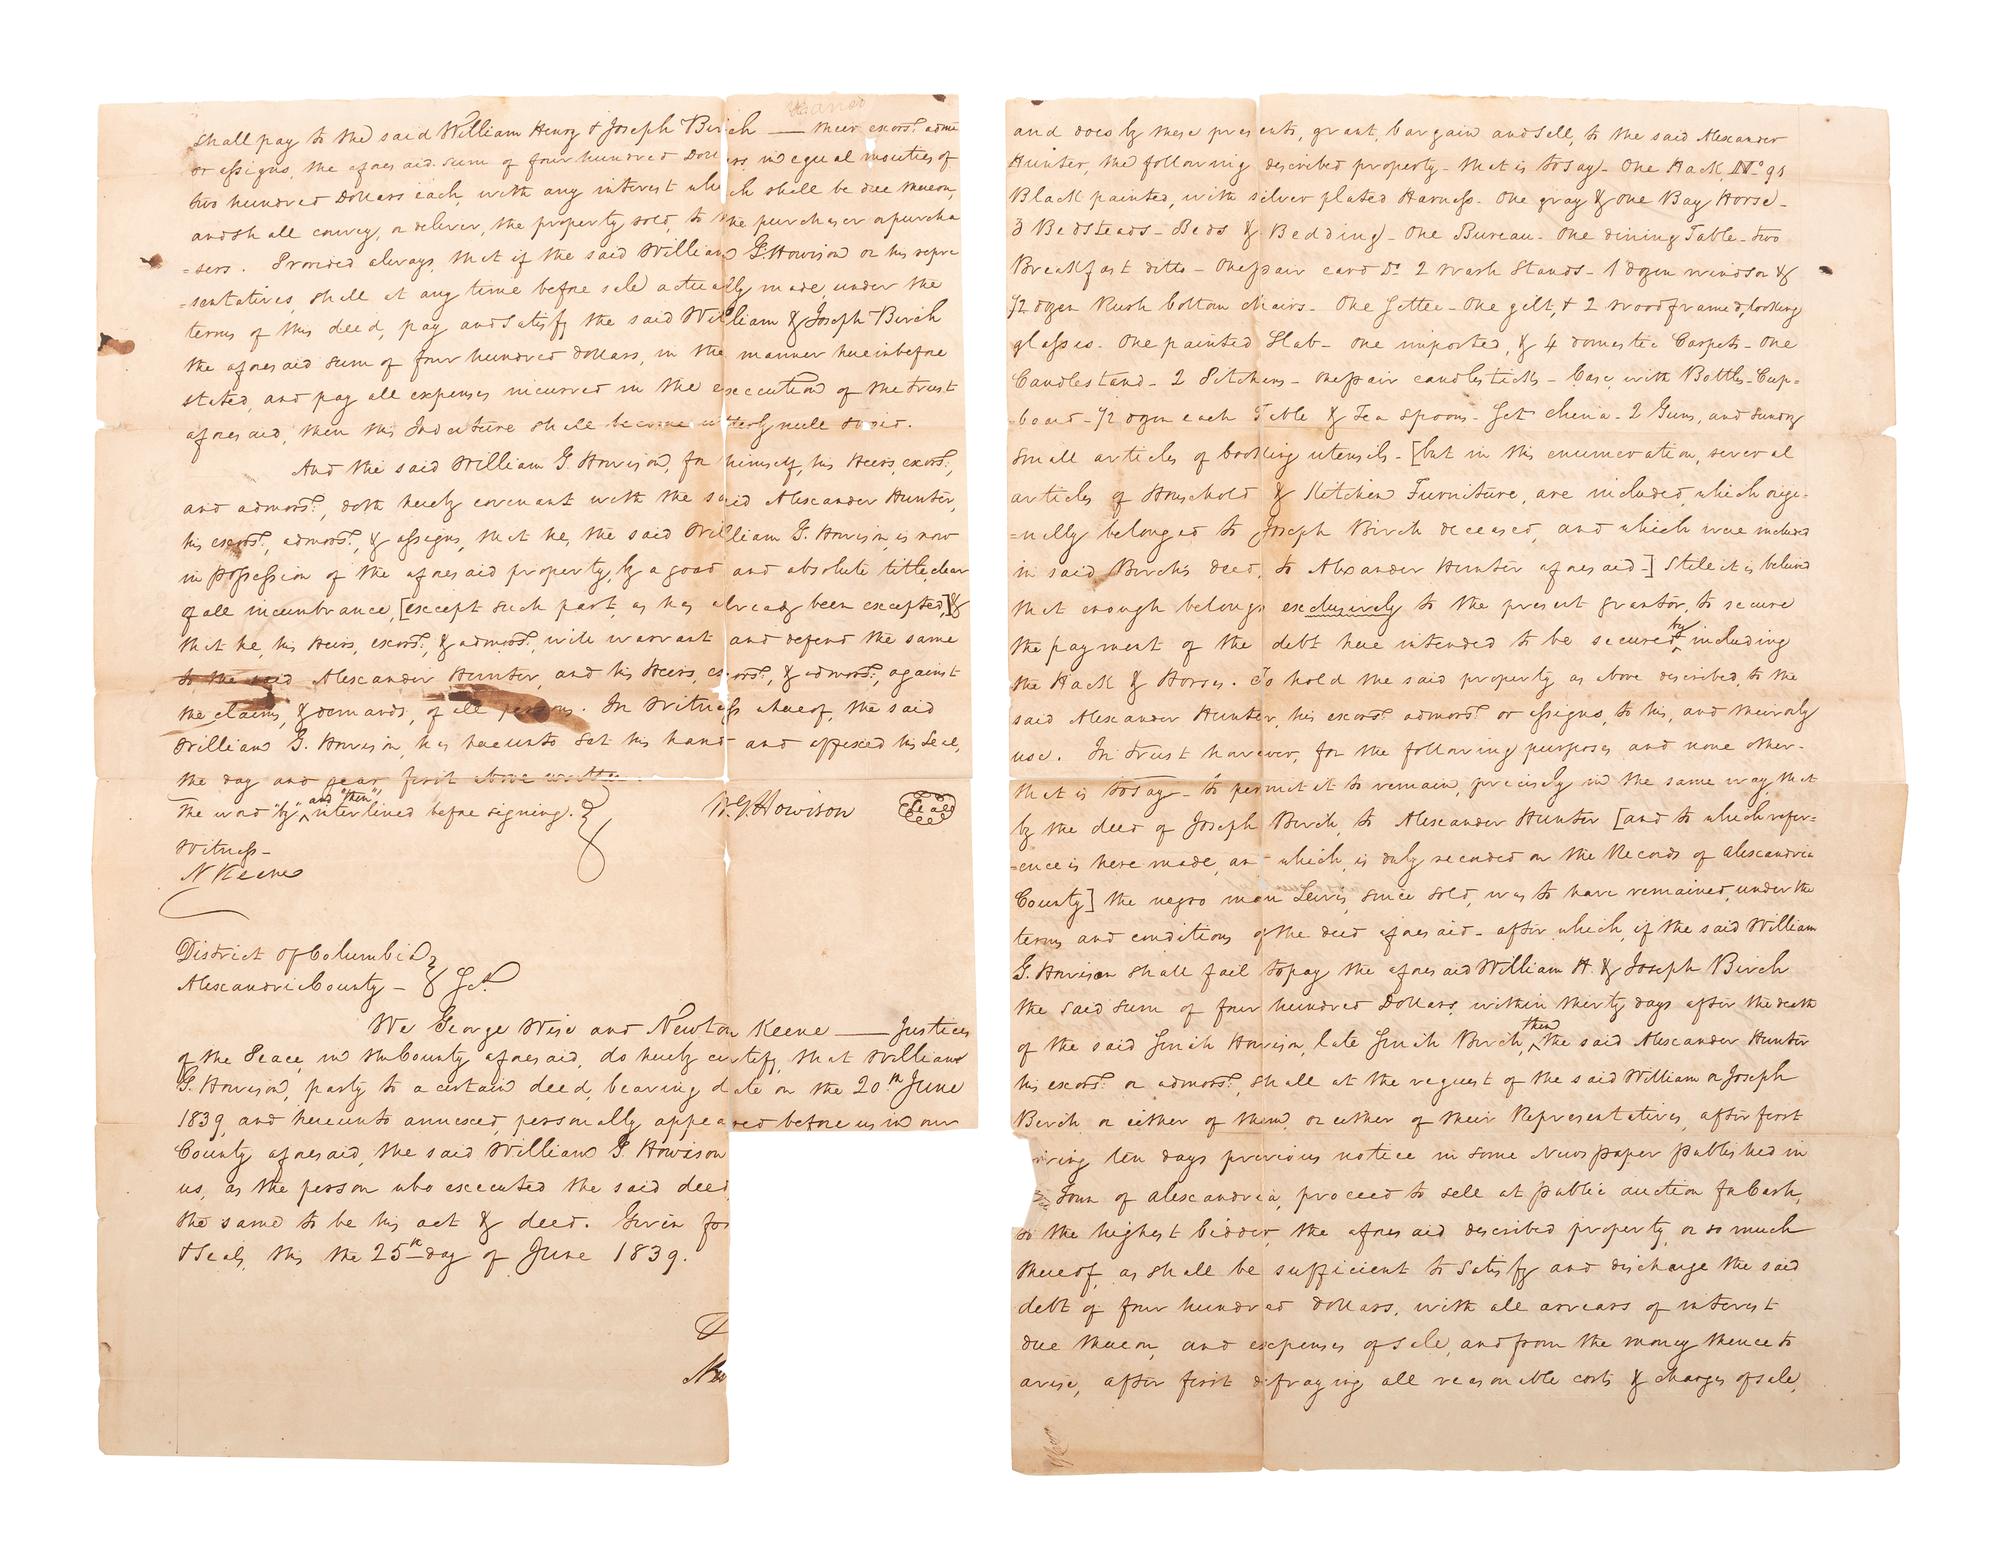 shall pay to the said William Henry & Joseph Birch — their exors. adms
or assigns, the aforesaid sum of four hundred Dollars in equal moieties of
two hundred Dollars each, with any interest which shall be due thereon,
and shall convey, or deliver, the property sold, to the purchaser or purcha
=sers. Provided always, that if the said William G. Howison or his repre
=sentatives, shall at any time before sale actually made, under the
terms of this deed, pay and satisfy the said William & Joseph Birch
the aforesaid sum of four hundred dollars, in the manner hereinbefore
stated, and pay all expenses incurred in the execution of the trust
aforesaid, then this Indenture shall become utterly null & void.
And the said William G. Howison, for himself, his Heirs, exors.,
and admors., doth hereby covenant with the said Alexander Hunter,
his exors., admors., & assigns, that he, the said William G. Howison, is now
in possession of the aforesaid property, by a good and absolute title, clear
of all incumbrance, [except such part, as has already been excepted,] &
that he, his Heirs, exors., & admors., will warrant and defend the same
to the said Alexander Hunter, and his Heirs, exors., & admors., against
the claims, & demands, of all persons. In Witness whereof, the said
William G. Howison, has hereunto set his hand and affixed his Seal,
the day and year first above written.
The word "by" and "then", interlined before signing.
W. G. Howison Seal
Witness-
N Keene
District of Columbia
Alexandria County - Sct.
We George Wise and Newton Keene — Justices
of the Peace, in the County aforesaid, do hereby certify, that William
G. Howison, party to a certain deed, bearing date on the 20th June
1839, and hereunto annexed, personally appeared before us in our
County aforesaid, the said William G. Howison
us, as the person who executed the said deed,
the same to be his act & deed. Given
& Seals, this the 25th day of June 1839.
and does by these presents, grant, bargain and sell, to the said Alexander
Hunter, the following described property - that is to say - One Hack, No. 91
Black painted, with silver plated Harness - One gray & one Bay Horse -
3 Bedsteads - Beds & Bedding - One Bureau - One dining Table - two
Breakfast ditto - One pair card Do. 2 Wash Stands - 1 dozen windsor &
1/2 dozen Rush bottom chairs - One Settee - One gilt, & 2 wood framed, looking
glasses. One painted Slab - One imported, & 4 domestic Carpets - One
Candlestand - 2 Pitchers - One pair candlesticks - Case, with Bottles - Cup=
=board - 1/2 dozen each Table & Tea spoons - Set china - 2 Guns, and sundry
small articles of cooking utensils - [but in this enumeration, several
articles of Household & Kitchen Furniture, are included, which origi-
=nally belonged to Joseph Birch deceased, and which were included
in said Birch's deed, to Alexander Hunter aforesaid -] Still it is believed
that enough belongs exclusively to the present grantor, to secure
the payment of the debt here intended to be secured by including
the Hack & Horses. To hold the said property as above described, to the
said Alexander Hunter, his exors. admors. or assigns, to his, and their only
use. In trust however, for the following purposes and none other -
that is to say - to permit it to remain, precisely in the same way, that
by the deed of Joseph Birch, to Alexander Hunter [and to which refer=
=ence is here made, an which, is duly recorded on the Records of Alexandria
County] the negro man Lewis, since sold, was to have remained, under the
terms and conditions of the deed aforesaid - after which, if the said William
G. Howison shall fail to pay the aforesaid William H. & Joseph Birch
the said sum of four hundred Dollars, within thirty days after the death
of the said Howison, late Birch, then the said Alexander Hunter
his exors. or admors., shall at the request of the said William or Joseph
Birch or either of them, or either of their Representatives, after first
giving ten days previous notice in some Newspaper published in
Town of Alexandria, proceed to sell at public auction for Cash,
to the highest bidder, the aforesaid described property, or so much
thereof, as shall be sufficient to satisfy and discharge the said
debt of four hundred dollars, with all arrears of interest
due thereon, and expenses of sale, and from the money thence to
arise, after first defraying all reasonable costs & charges of sale,